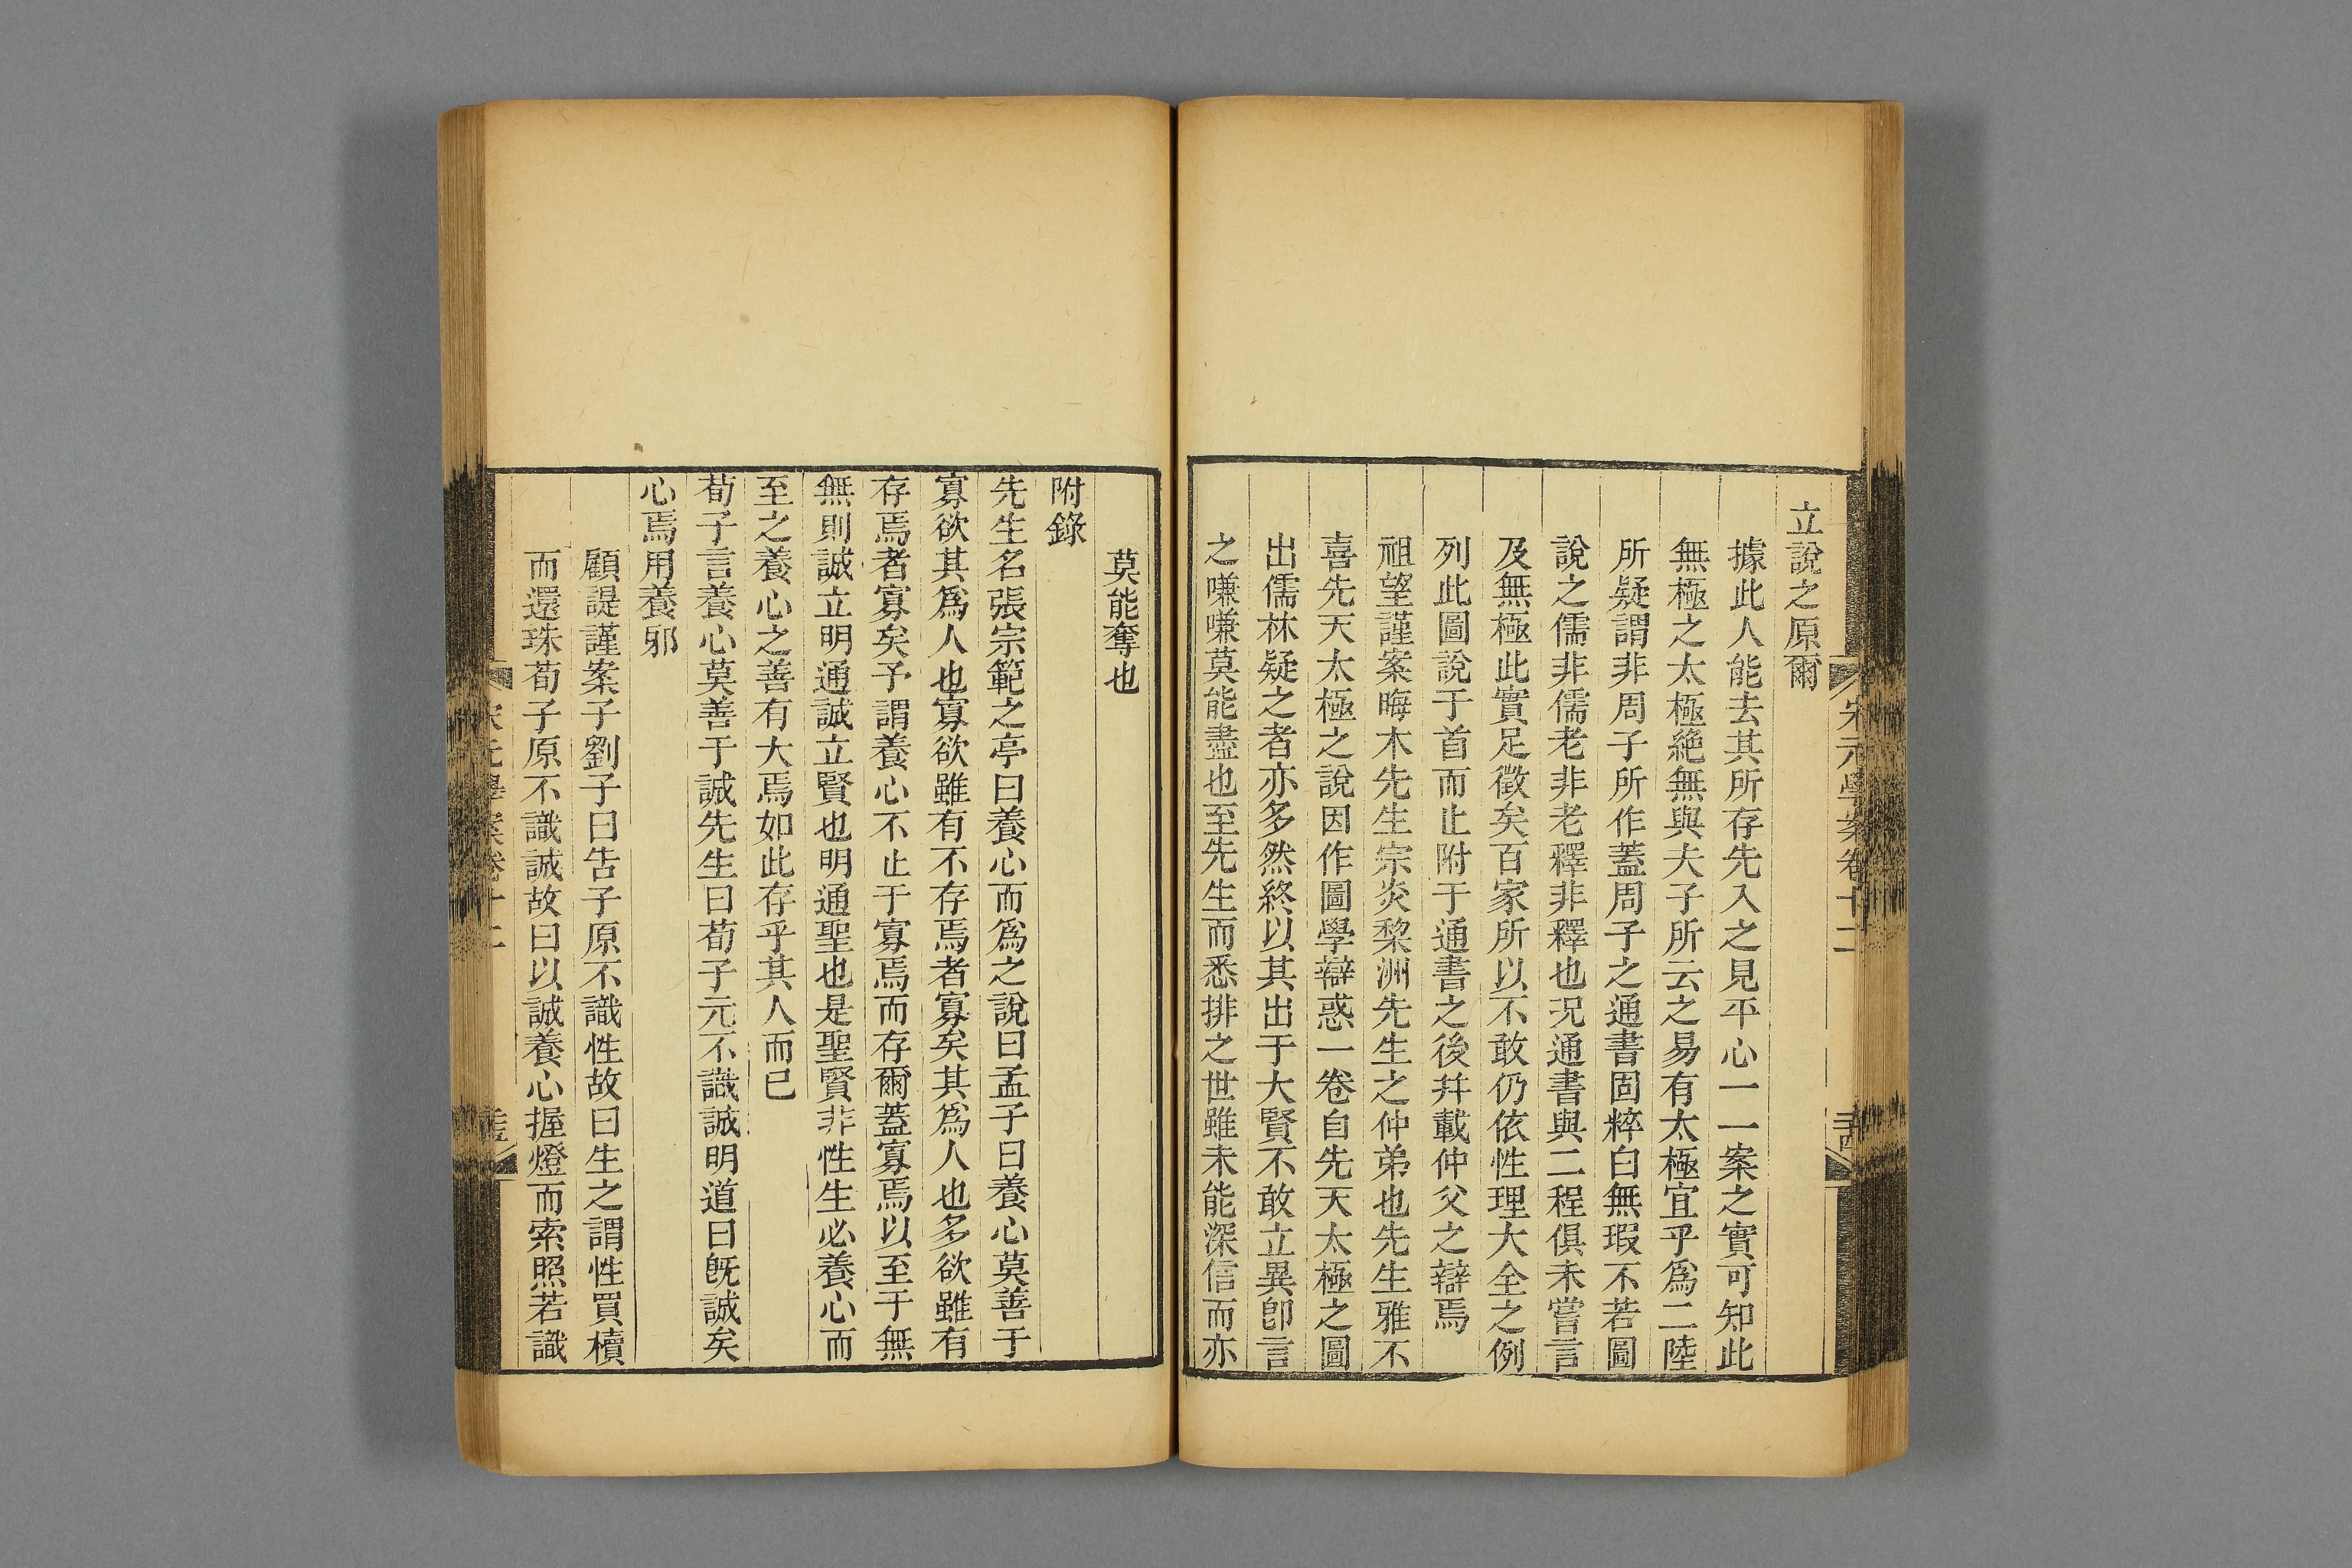 宋元學案卷十二
立說之原爾
據此人能去其所存先入之見平心一一案之實可知此
無極之太極絶無與夫子所云之易有太極宜乎爲二陸
所疑謂非周子所作蓋周子之通書固粹白無瑕不若圖
說之儒非儒老非老釋非釋也况通書與二程俱未嘗言
及無極此實足徵矣百家所以不敢仍依性理大全之例
列此圖說于首而止附于通書之後幷載仲父之辯焉
祖望謹案晦木先生宗炎棃洲先生之仲弟也先生雅不
喜先天太極之說因作圖學辯惑一卷自先天太極之圖
出儒林疑之者亦多然終以其出于大賢不敢立異卽言
之嗛嗛莫能盡也至先生而悉排之世雖未能深信而亦
莫能奪也
附錄
先生名張宗範之亭曰養心而爲之說曰孟子曰養心莫善于
寡欲其爲人也寡欲雖有不存焉者寡矣其爲人也多欲雖有
存焉者寡矣予謂養心不止于寡焉而存爾蓋寡焉以至于無
無則誠立明通誠立賢也明通聖也是聖賢非性生必養心而
至之養心之善有大焉如此存乎其人而已
荀子言養心莫善于誠先生曰荀子元不識誠明道曰旣誠矣
心焉用養邪
顧諟謹案子劉子曰告子原不識性故曰生之謂性買櫝
而還珠荀子原不識誠故曰以誠養心握燈而索照若識
宋元學案卷十二